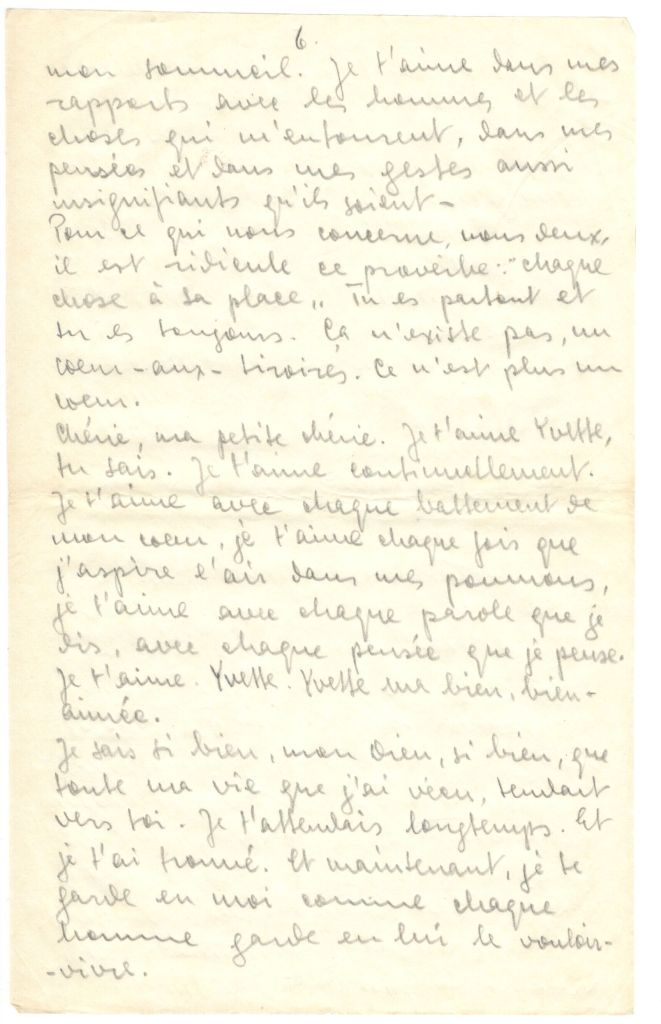 6.
mon sommeil. Je t'aime dans mes
rapports avec les hommes et les
choses qui m'entourent, dans mes
pensées et dans mes gestes aussi
insignifiants qu'ils soient -
Pour ce qui nous concerne, nous deux,
il est ridicule ce proverbe : "chaque
chose à sa place„ Tu es partout et
tu es toujours. Ça n'existe pas, un
coeur-aux-tiroirs. Ce n'est plus un
coeur.
Chérie, ma petite chérie. Je t'aime Yvette,
tu sais. Je t'aime continuellement.
Je t'aime avec chaque battement de
mon coeur, je t'aime chaque fois que
j'aspire l'air dans mes poumons,
je t'aime avec chaque parole que je
dis, avec chaque pensée que je pense.
Je t'aime. Yvette. Yvette ma bien, bien-
aimée.
Je sais si bien, mon Dieu, si bien, que
toute ma vie que j'ai vécu, tendait
vers toi. Je t'attendais longtemps. Et
je t'ai trouvé. Et maintenant, je te
garde en moi comme chaque
homme garde en lui le vouloir-
-vivre.